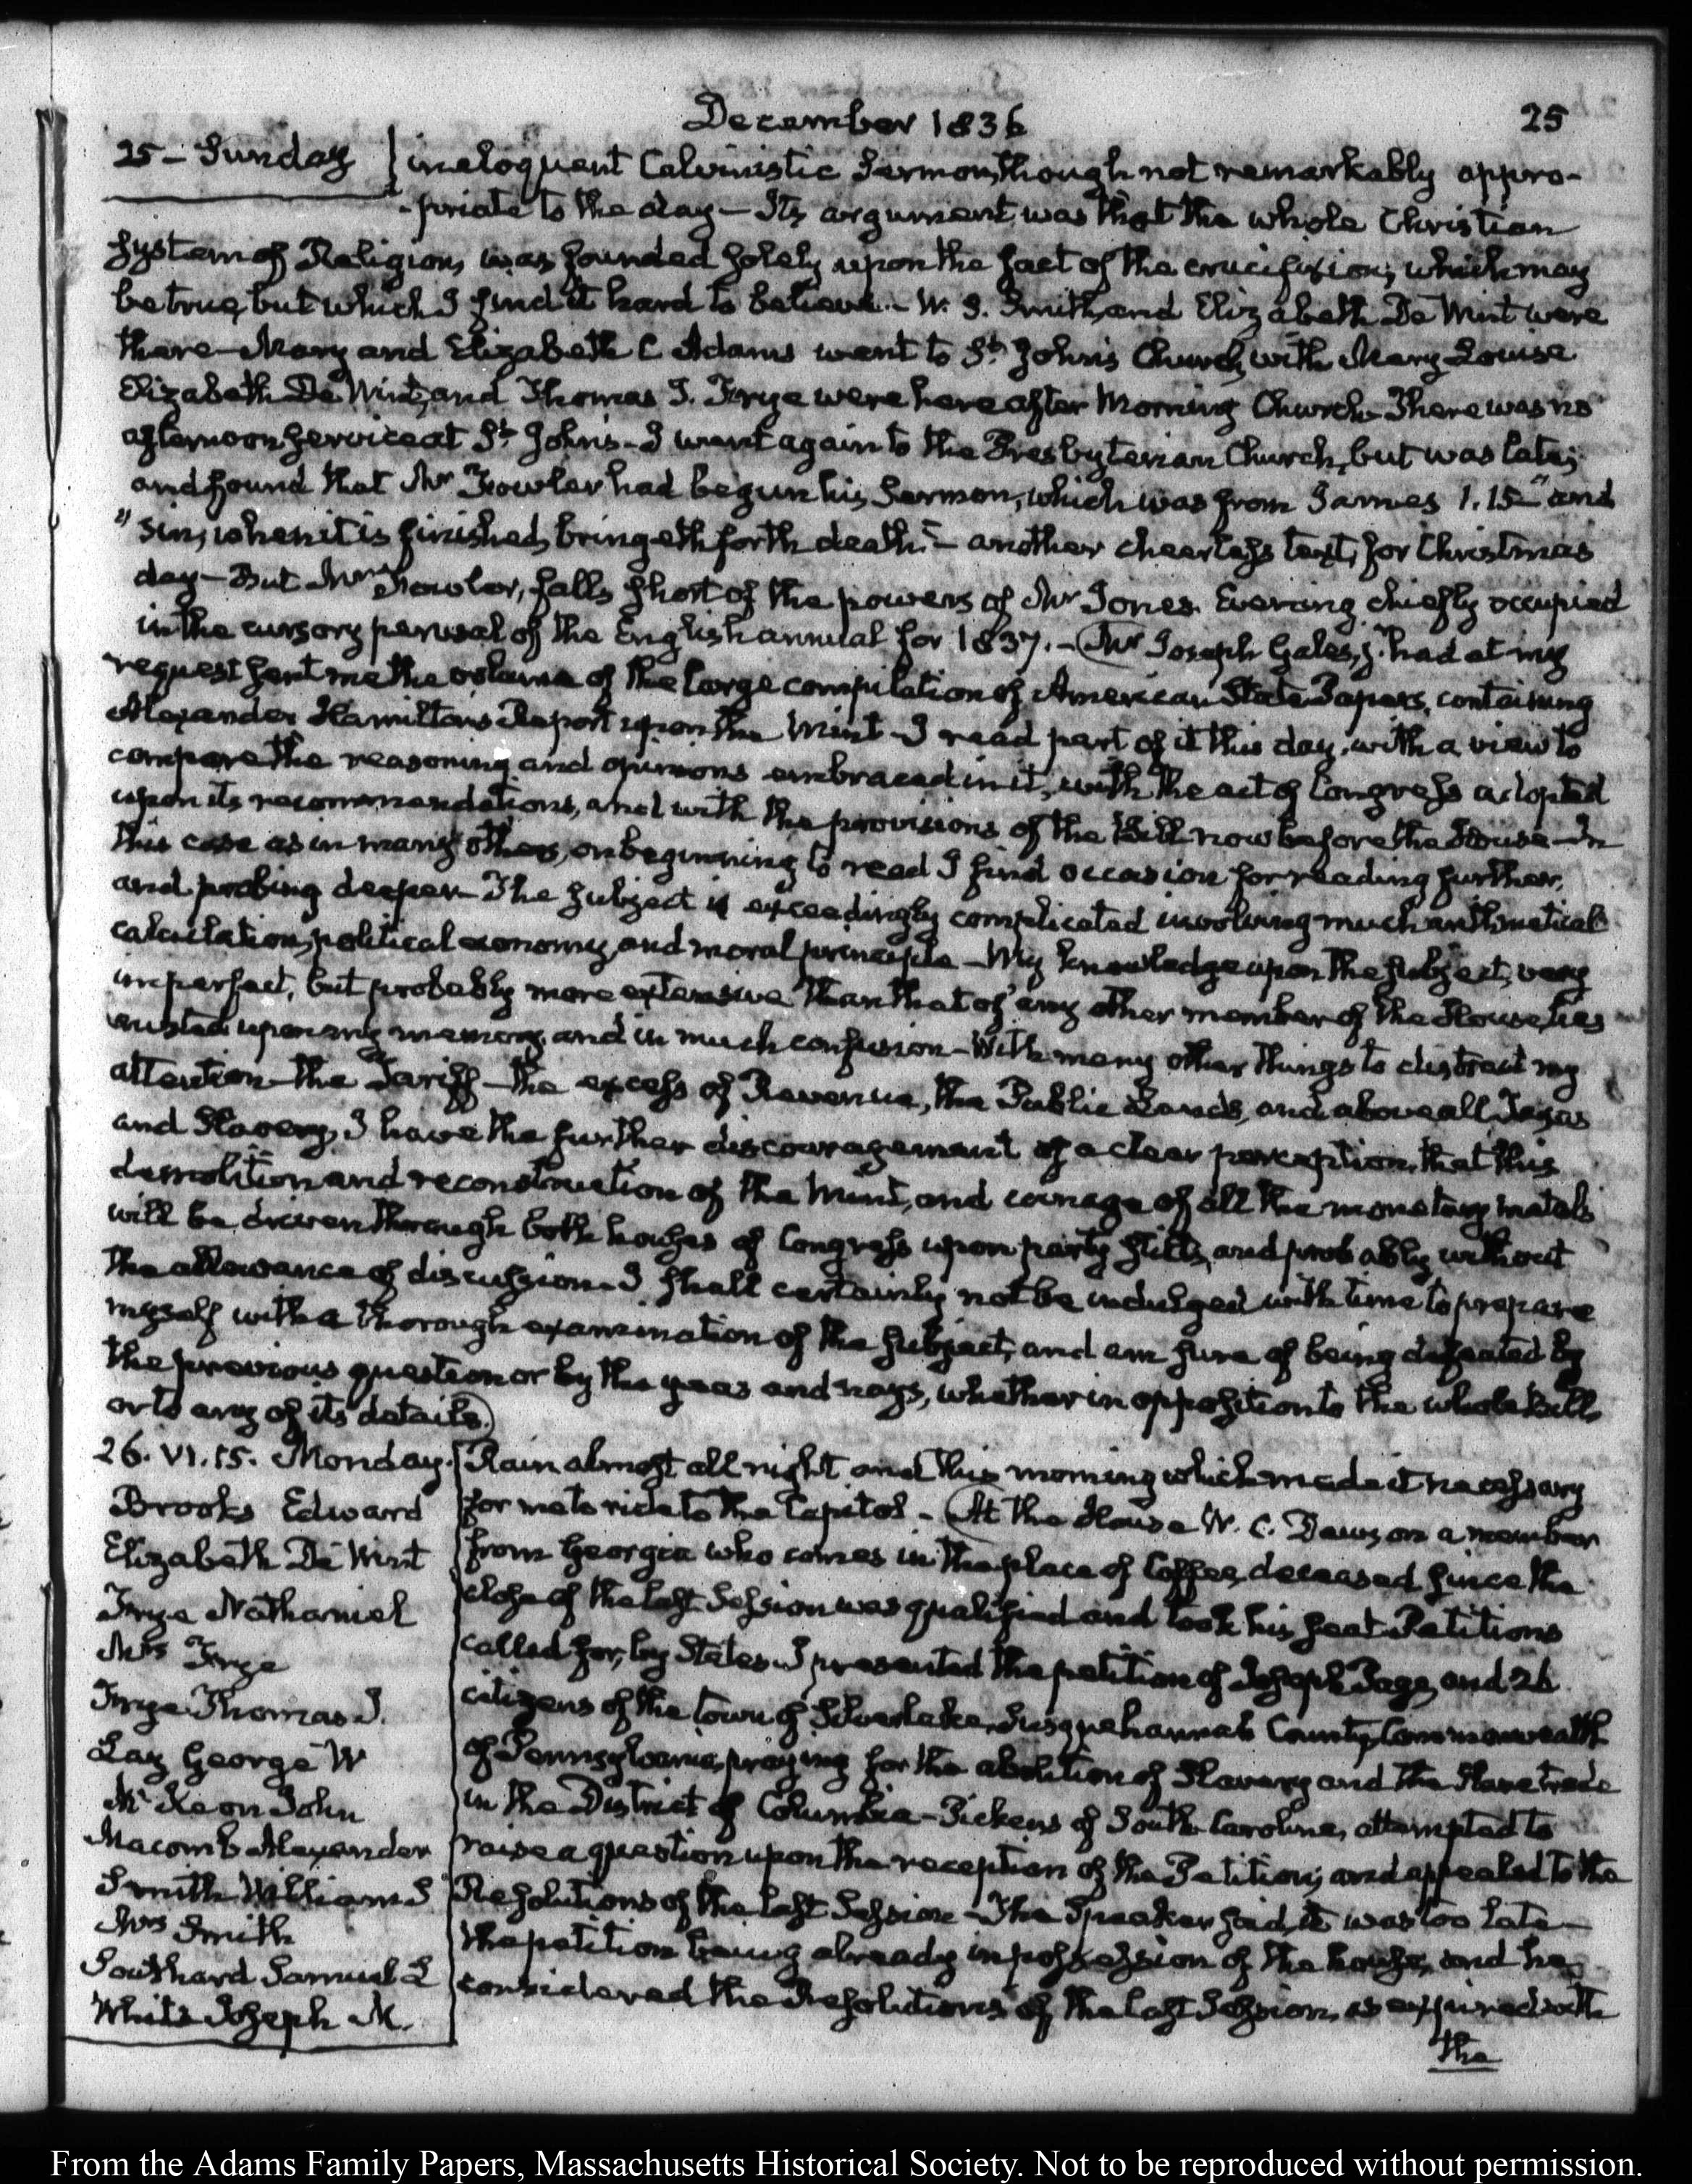 December 1836
25
25 - Sunday
in eloquent Calvinistic Sermon, though not remarkably appro-
-priate to the day — Its argument was that the whole Christian
System of Religion, was founded solely upon the fact of the crucifixion; which may
be true, but which I find it hard to believe. — W. S. Smith, and Elizabeth De Wint were
there — Mary and Elizabeth C Adams went to St. John's Church, with Mary Louisa
Elizabeth De Wint, and Thomas J. Frye were here after Morning Church. There was no
afternoon service at St. John's — I went again to the Presbyterian Church, but was late;
and found that Mr Fowler had begun his Sermon, which was from James 1.15 "and
"sin, when it is finished, bringeth forth death." — another cheerless text, for Christmas
day — But Mr Fowler, falls short of the powers of Mr Jones. Evening chiefly occupied
in the cursory perusal of the English annual for 1837. — (Mr Joseph Gales, jr. had at my
request sent me the volume of the large compilation of American State Papers, containing
Alexander Hamilton's Report upon the Mint — I read part of it this day, with a view to
compare the reasoning and opinions embraced in it, with the act of Congress adopted
upon its recommendations, and with the provisions of the Bill now before the House — In
this case as in many others, on beginning to read I find occasion for reading further,
and probing deeper — The subject is exceedingly complicated involving much arithmetical
calculation, political economy, and moral principle — My knowledge upon the subject, very
imperfect, but probably more extensive than that of any other member of the House, lies
rusted upon my memory, and in much confusion — With many other things to distract my
attention — the Tariff — the excess of Revenue, the Public Lands, and above all Texas
and Slavery, I have the further discouragement of a clear perception, that this
demolition and reconstruction of the Mint, and coinage of all the monetary metals
will be driven through both houses of Congress upon party stilts, and probably without
the allowance of discussion — I shall certainly not be indulged with time to prepare
myself with a thorough examination of the subject, and am sure of being defeated by
the previous question or by the yeas and nays, whether in opposition to the whole bill,
or to any of its details.)
26. VI.15. Monday.
Brooks Edward
Elizabeth De Wint
Frye Nathaniel
Mrs Frye
Frye Thomas J.
Lay George W
McKeon John
Macomb Alexander
Smith William S
Mrs Smith
Southard Samuel L
White Joseph M.
Rain almost all night and this morning which made it necessary
for me to ride to the Capitol. — (At the House W. C. Dawson a member
from Georgia who comes in the place of Coffee, deceased since the
close of the last Session was qualified and took his seat. Petitions
called for, by States. I presented the petition of Joseph Page, and 26
citizens of the town of Silverlake, Susquehannah County, Commonwealth
of Pennsylvania, praying for the abolition of Slavery and the Slave trade
in the District of Columbia — Pickens of South Carolina, attempted to
raise a question upon the reception of the Petition; and appealed to the
Resolutions of the last Session — The Speaker said, it was too late —
the petition being already in possession of the house, and he
considered the Resolutions of the last Session, as expired with
the
From the Adams Family Papers, Massachusetts Historical Society. Not to be reproduced without permission.